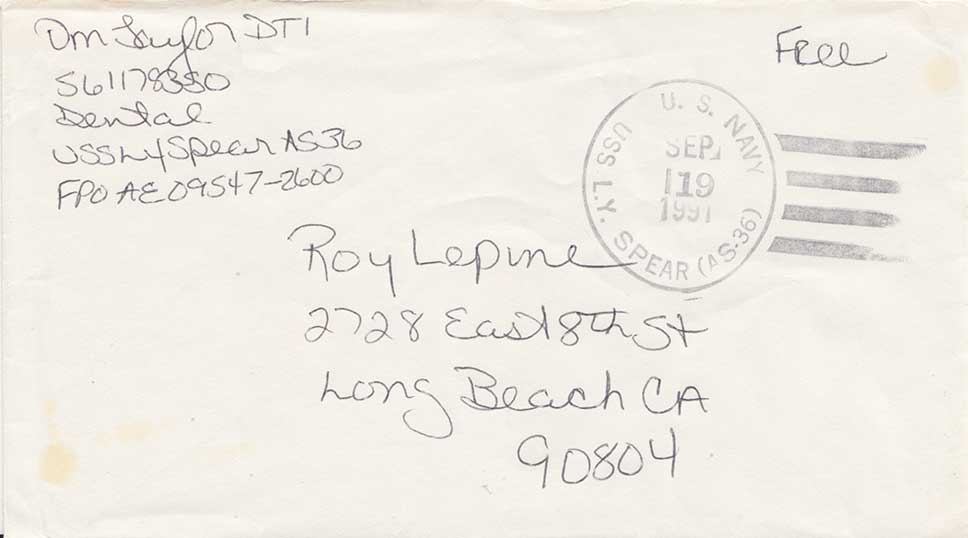 Dm Taylor DT1
561178350
Dental
USS LY Spear AS36
FPO AE 09547-2600
Free
U. S. NAVY
USS L.Y. SPEAR (AS-36)
SEP
19
1991
Roy Lepine
2728 East 8th St
Long Beach CA
90804